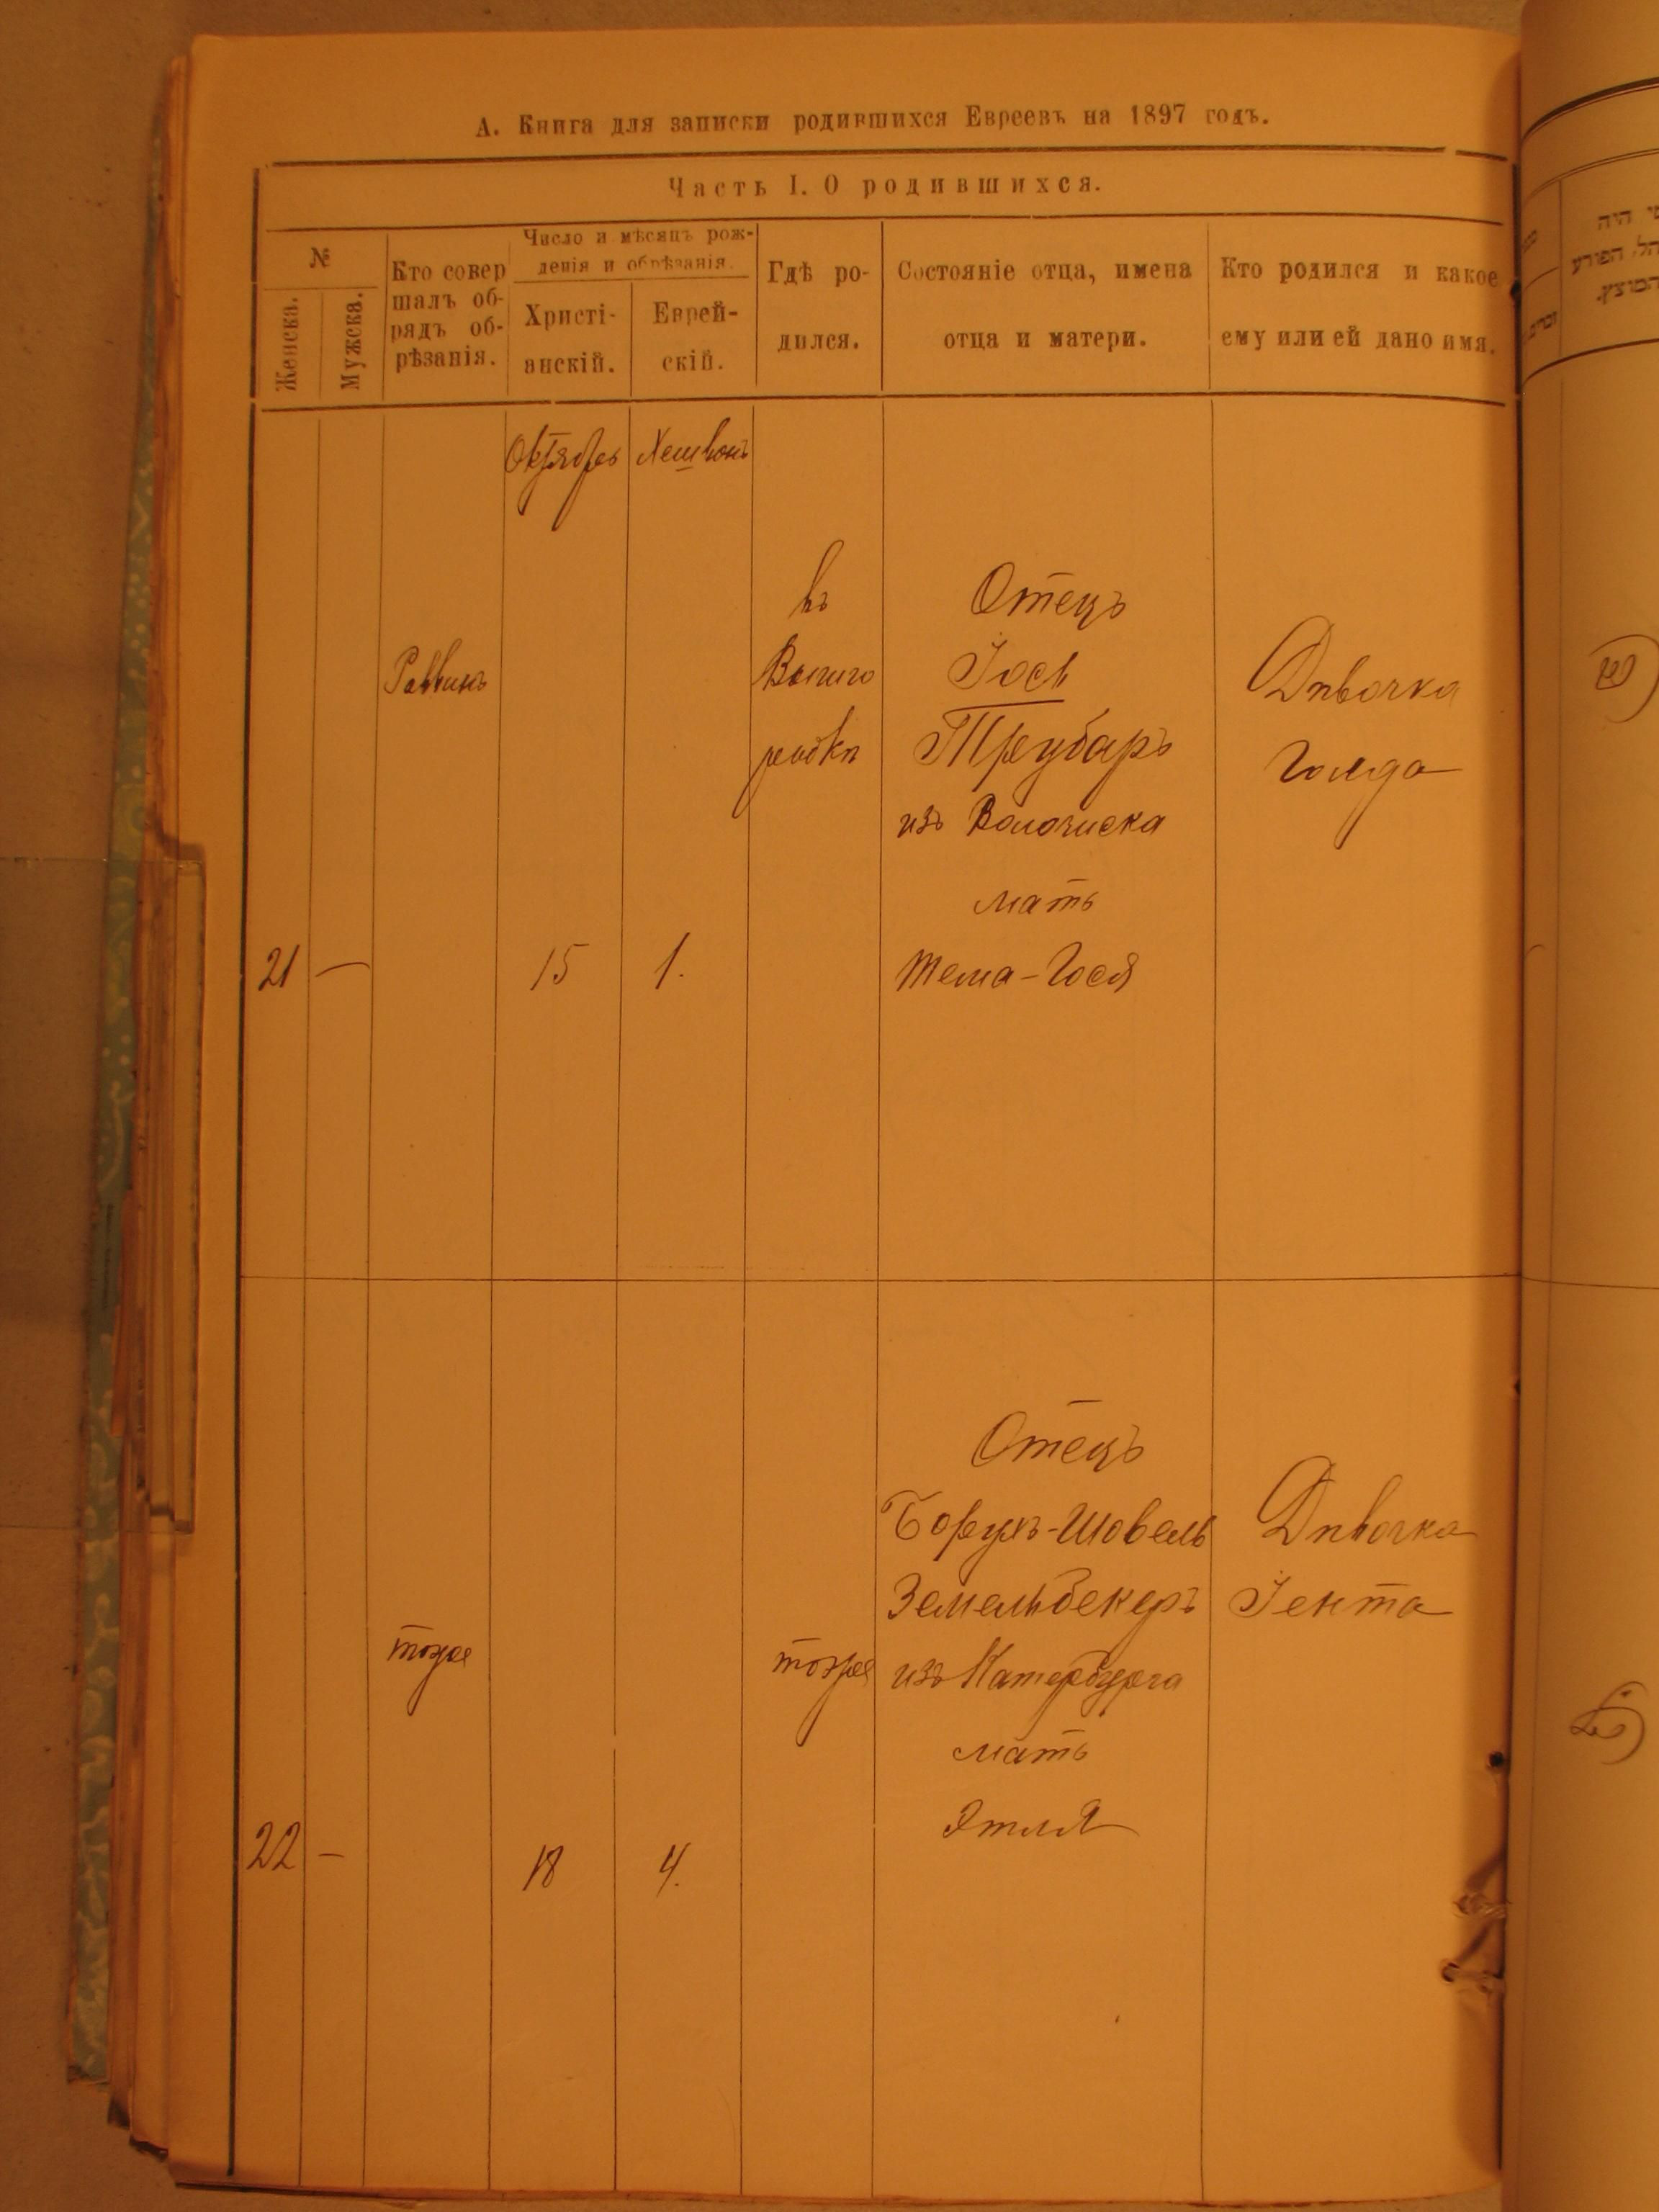 А. Книга для записки родившихся Евреевъ на 1897 годъ.
Часть I. О родившихся.
№
Женска.
Мужска.
Кто совер
шалъ об-
рядъ об-
рѣзанія.
Число и мѣсяцъ рож-
денія и обрѣзанія.
Христі-
анскій.
Еврей-
скій.
Гдѣ ро-
дился.
Состояніе отца, имена
отца и матери.
Кто родился и какое
ему или ей дано имя.
Октябрь
Хешвонъ
21
—
Раввинъ
15
1.
въ
Вышго
родкѣ
Отецъ
Іось
Трубаръ
изъ Волочиска
мать
Тема-Гося
Дѣвочка
Голда
22
—
тоже
18
4.
тоже
Отецъ
Борухъ-Шовель
Земельбекеръ
изъ Катербурга
мать
Этля
Дѣвочка
Іента
היה
הפורע